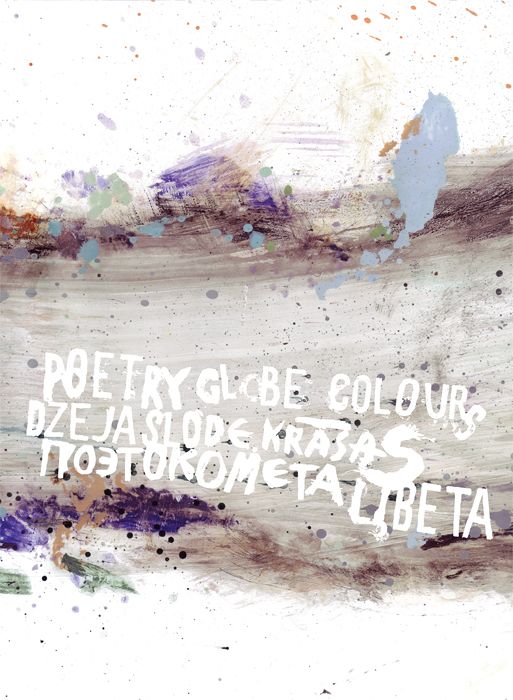 POETRY GLOBE COLOURS
DZEJA SLODE KRASAS
ПОЭТОКОМЕТА ЦВЕТА